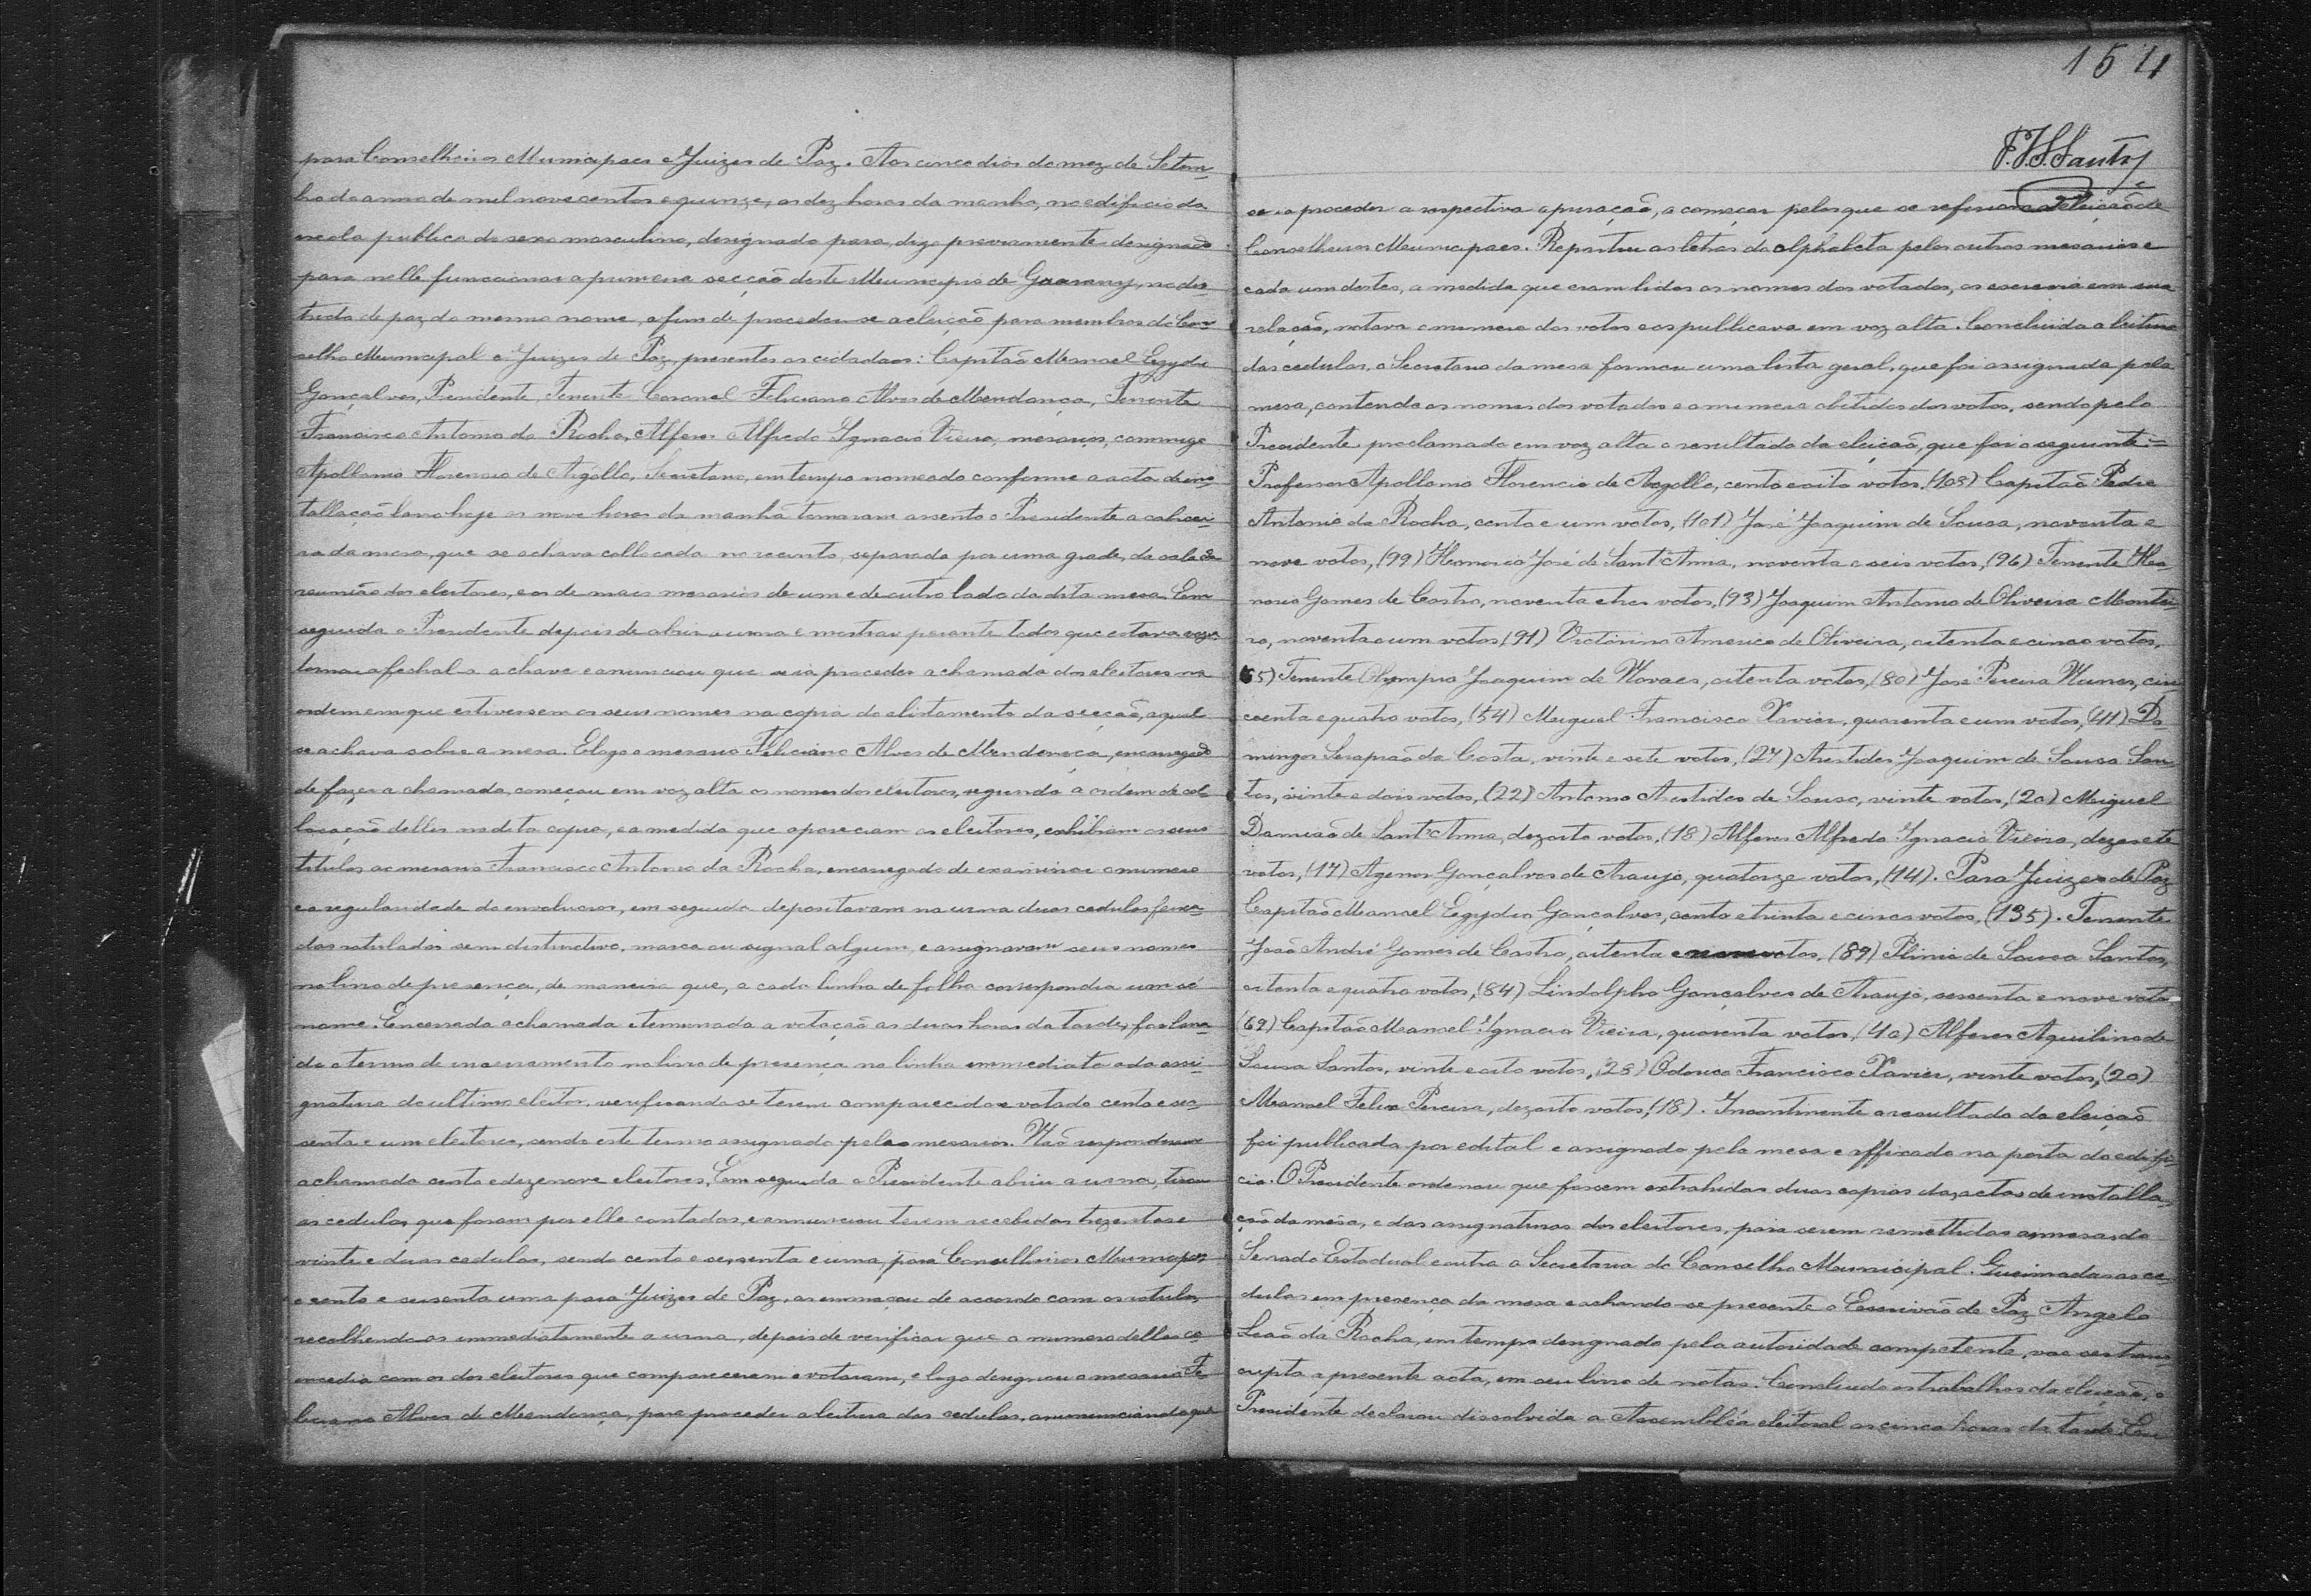 para Conselheiros Municipaes e Juizes de Paz. Aos cinco dias do mez de Setem-
bro do anno de mil novecentos e quinze, as dez horas da manhã, no edificio da
escola publica do sexo masculino, designado para, digo previamente designado
para nelle funccionar a primeira secção deste Municipio de Guarany, no dis-
tricto de paz do mesmo nome, a fim de proceder-se a eleição para membros do Con-
selho Municipal e Juizes de Paz, presentes os cidadãos: Capitão Manoel Egydio
Gonçalves, Presidente, Tenente Coronel Feliciano Alves de Mendonça, Tenente
Francisco Antonio da Rocha, Alferes Alfredo Ignacio Vieira, mesarios, commigo
Apollonio Florencio de Argollo, Secretario, em tempo nomeado conforme a acta de ins-
tallação hoje as nove horas da manhã tomaram assento o Presidente a cabecei-
ra da mesa, que se achava collocada no recinto, separado por uma grade, da sala de
reunião dos eleitores, e os de mais mesarios de um e de outro lado da dita mesa. Em
seguida o Presidente depois de abrir a urna e mostrar perante todos que estava
tornou a fechal-a a chave e anunciou que se ia proceder a chamada dos eleitores na
ordem em que estivessem os seus nomes na copia do alistamento da secção, a qual
se achava sobre a mesa. E logo o mesario Feliciano Alves de Mendonça, encarregado
de fazer a chamada, começou em voz alta os nomes dos eleitores, segundo a ordem de col-
locação delles na dita copia, e a medida que apareciam os eleitores, exhibiam os seus
titulos ao mesario Francisco Antonio da Rocha, encarregado de examinar o numero
e a regularidade do envolucros, em seguida depositavam na urna duas cedulas fexa-
das rotuladas sem distinctivo, marca ou signal algum, e assignavam seus nomes
no livro de presença, de maneira que, a cada linha de folha correspondia um só
nome. Encerrada a chamada e terminada a votação as duas horas da tarde, foi lavra-
do o termo de encerramento no livro de presença na linha immediata a da assi-
gnatura do ultimo eleitor, verificando-se terem comparecido e votado cento e ses-
senta e um eleitores, sendo este termo assignado pelos mesarios. Não responderam
a chamada cento e dezenove eleitores. Em seguida o Presidente abriu a urna, tirou
as cedulas que foram por elle contadas, e annunciou terem recebidas trezentas e
vinte e duas cedulas, sendo cento e sessenta e uma, para Conselheiros Municipaes
e cento e sessenta uma para Juizes de Paz, as emmaçou de accordo com os rotulos,
recolhendo as immediatamente a urna, depois de verificar que o numero dellas co-
incedia com os dos eleitores que compareceram e votaram, e logo designou o mesario Fe-
liciano Alves de Mendonça, para proceder a leitura das cedulas, annunciando que
154
F.J.S.Santos
se ia proceder a respectiva apuração, a começar pelos que se referiam a eleição de
Conselheiros Municipaes. Repartiu as letras do alphabeta pelos outros mesarios e
cada um destes, a medida que eram lidos os nomes dos votados, os escrevia em sua
relação, notava o numero dos votos e os publicava em voz alta. Concluida a leitura
das cedulas, o Secretario da mesa formou uma lista geral, que foi assignada pela
mesa, contendo os nomes dos votados e o numero obtidos dos votos, sendo pelo
Presidente proclamado em voz alta o resultado da eleição, que foi o seguinte:=
Professor Apollonio Florencio de Argollo, cento e oito votos, (108) Capitão Pedro
Antonio da Rocha, cento e um votos, (101) José Joaquim de Sousa, noventa e
nove votos, (99) Honorio José de Sant'Anna, noventa e seis votos, (96) Tenente Ho-
norio Gomes de Castro, noventa e tres votos, (93) Joaquim Antonio de Oliveira Montei-
ro, noventa e um votos, (91) Victorino Americo de Oliveira, oitenta e cinco votos,
85) Tenente Olympio Joaquim de Novaes, oitenta votos, (80) José Pereira Nunes, cin-
coenta e quatro votos, (54) Miguel Francisco Xavier, quarenta e um votos, (41) Do-
mingos Serapião da Costa, vinte e sete votos, (27) Aristides Joaquim de Sousa San-
tos, vinte e dois votos, (22) Antonio Aristides de Sousa, vinte votos, (20) Miguel
Damião de Sant'Anna, dezoito votos, (18) Alferes Alfredo Ignacio Vieira, dezesete
votos, (17) Agenor Gonçalves de Araujo, quatorze votos, (14). Para Juizes de Paz
Capitão Manoel Egydio Gonçalves, cento e trinta e cinco votos, (135). Tenente
João André Gomes de Castro, oitenta e nove votos, (89) Plinio de Sousa Santos,
oitenta e quatro votos, (84) Lindolpho Gonçalves de Araujo, sessenta e nove votos
(69) Capitão Manoel Ignacio Vieira, quarenta votos, (40) Alferes Aquilino de
Sousa Santos, vinte e oito votos, (28) Odorico Francisco Xavier, vinte votos, (20)
Manoel Felix Pereira, dezoito votos, (18). Incontinente o resultado da eleição
foi publicada por edital e assignado pela mesa e affixado na porta do edifi-
cio. O Presidente ordenou que fossem extrahidas duas copias das actas de installa-
ção da mesa, e das assignaturas dos eleitores, para serem remettidas a mesa do
Senado Estadual e outra a Secretaria do Conselho Municipal. Queimadas as ce-
dulas em presença da mesa e achando-se presente o Escrivão de Paz Angelo
Leão da Rocha, em tempo designado pela autoridade competente, vae ser trans-
cripta a presente acta, em seu livro de notas. Concluido os trabalhos da eleição, o
Presidente declarou dissolvida a Assembléa eleitoral as cinco horas da tarde. Eu